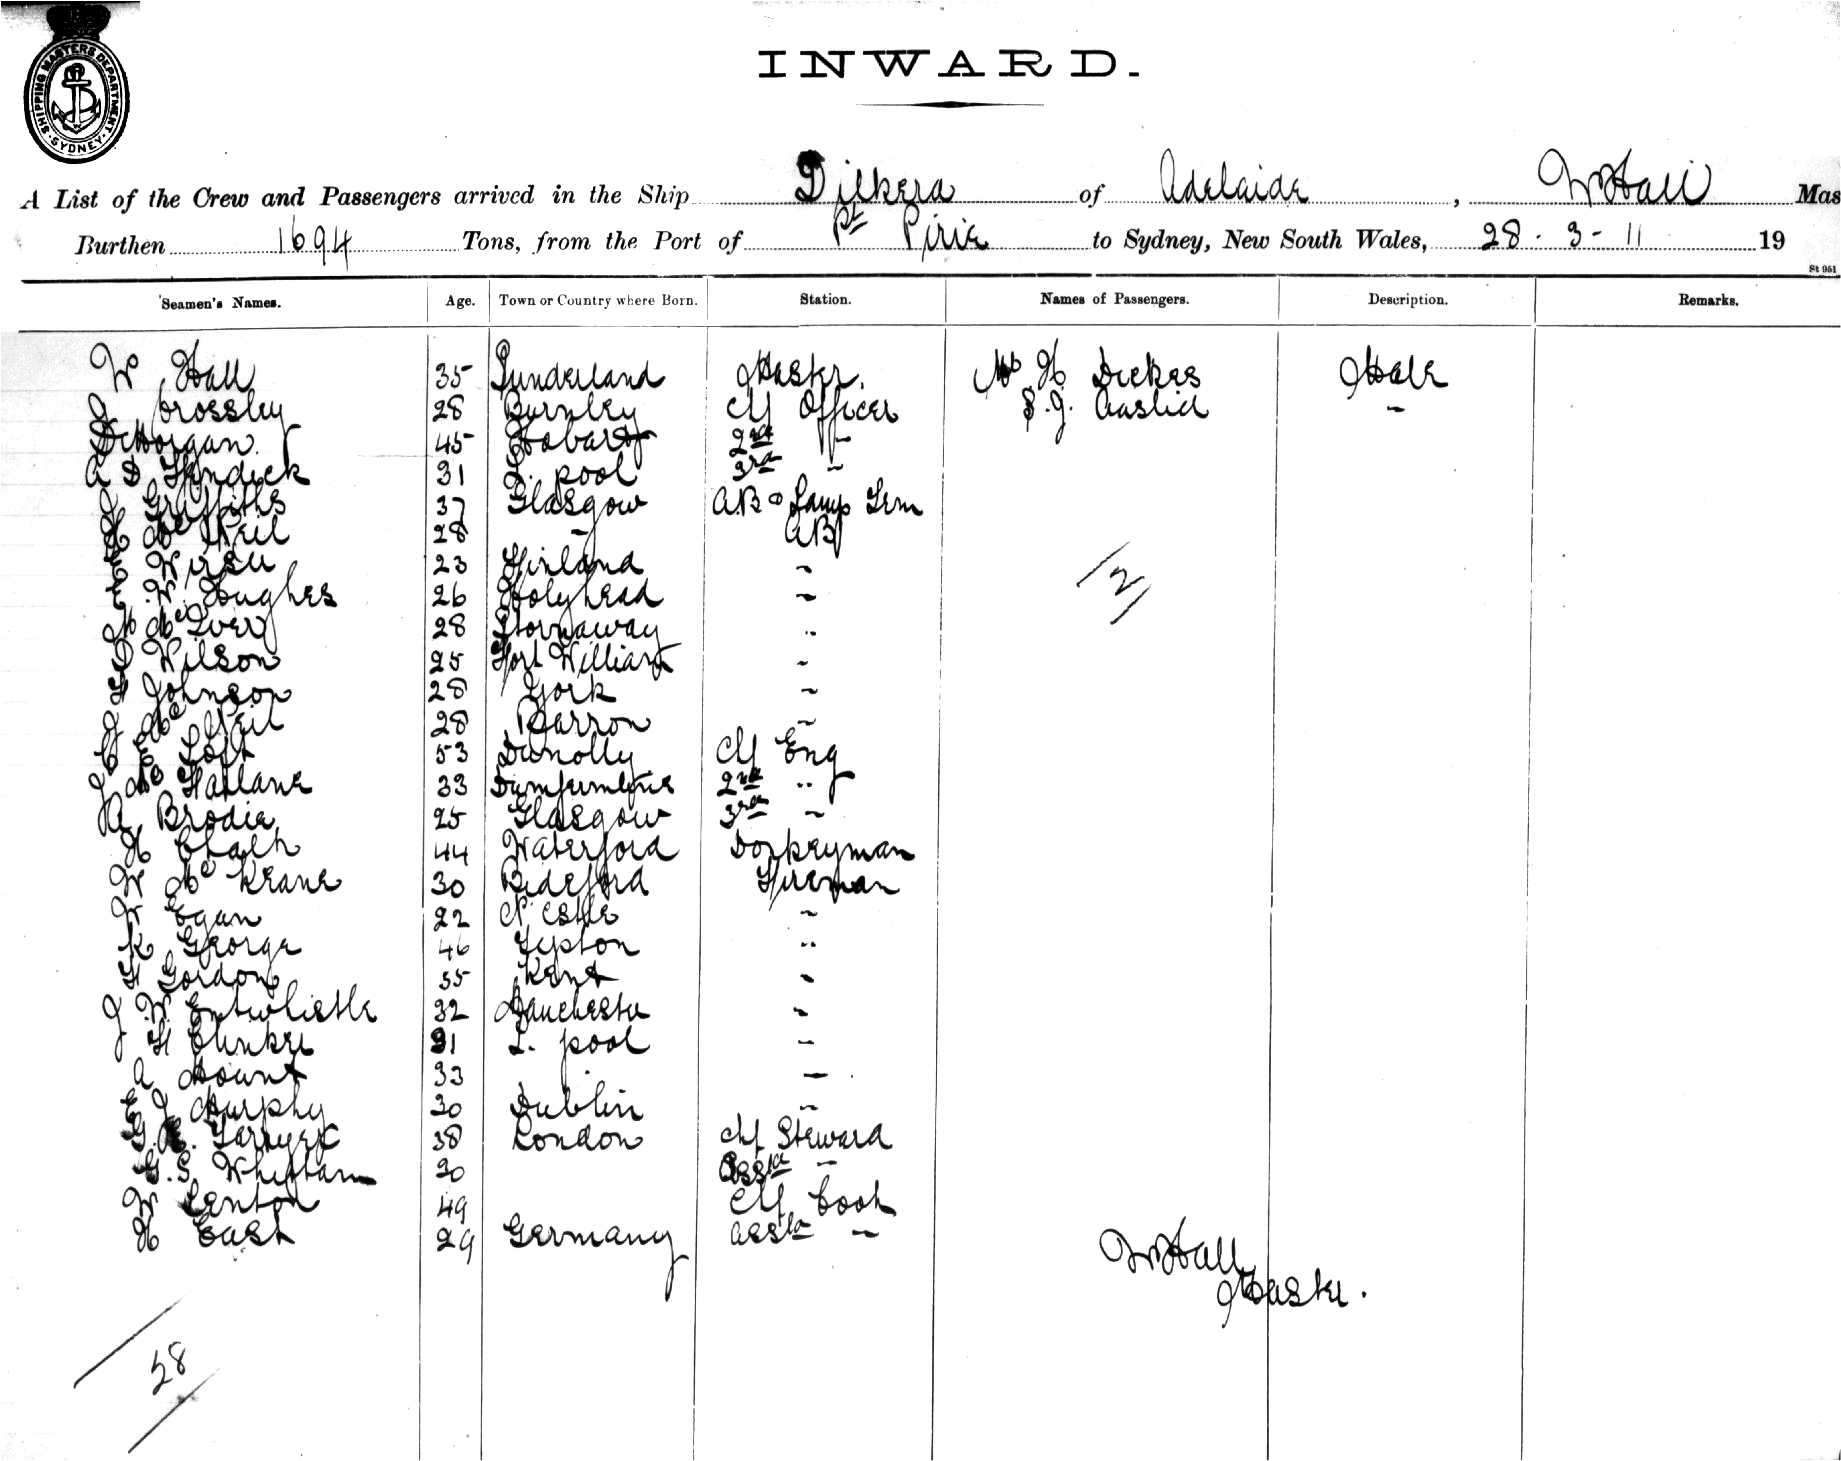 SHIPPING MASTERS DEPARTMENT. SYDNEY
INWARD.
A List of the Crew and Passengers arrived in the Ship Dilkera of Adelaide, W Hall Mas
Burthen 1694 Tons, from the Port of Pt Pirie to Sydney, New South Wales, 28 - 3 - 11 19
St 951
Seamen's Names. Age. Town or Country where Born. Station. Names of Passengers. Description. Remarks.
W Hall 35 Sunderland Master. Mr H Dickes Male
J Crossley 28 Burnley Cf Officer S. J. -
D Morgan 45 Hobart 2nd -
A D Fendick 31 L. pool 3rd -
J Griffiths 37 Glasgow AB & Lamp Trm
H McNeil 28 - AB
E Wirsu 23 Finland -
E. W. Hughes 26 Holyhead -
M McIver 28 Stornaway -
D Wilson 25 Fort William -
F Johnson 28 York -
J McNeil 28 Barron -
C E Loft 53 Dunolly Cf Eng
J McFarlane 33 Dumfermline 2nd "
A Brodie 25 Glasgow 3rd -
H Chalk 44 Waterford Donkeyman
W McKeane 30 Bideford Fireman
W Egan 22 N'Castle -
K George 46 Tipton "
H Gordon 35 Kent -
J. W. Entwhistle 32 Manchester -
J H Clinker 31 L. pool -
A Mount 33 -
E J Murphy 30 Dublin -
G. 38 London Chf Steward
G. S. Whittam 20 Asst -
W Lenton 49 Chf Cook
H East 29 Germany Asst -
2
W Hall
Master.
28